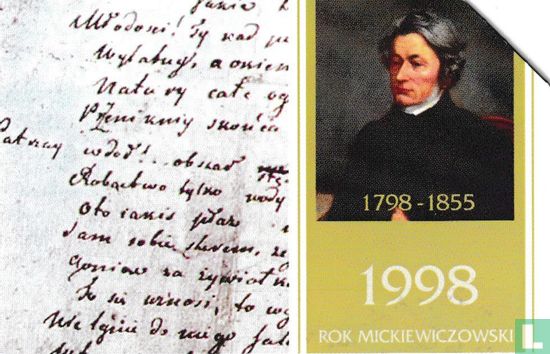 Młodości! Ty nad
Wylatuj, a okiem
Natury całe og
Przeniknij z końca
Patrzay w doł!... obszar
Robactwo tylko wody
oto iakis płaz
Sam sobie sterem, że
goniąc za żywioł
To się wznosi, to w
Nie lgnie do niego fala
1798 - 1855
1998
ROK MICKIEWICZOWSKI
L